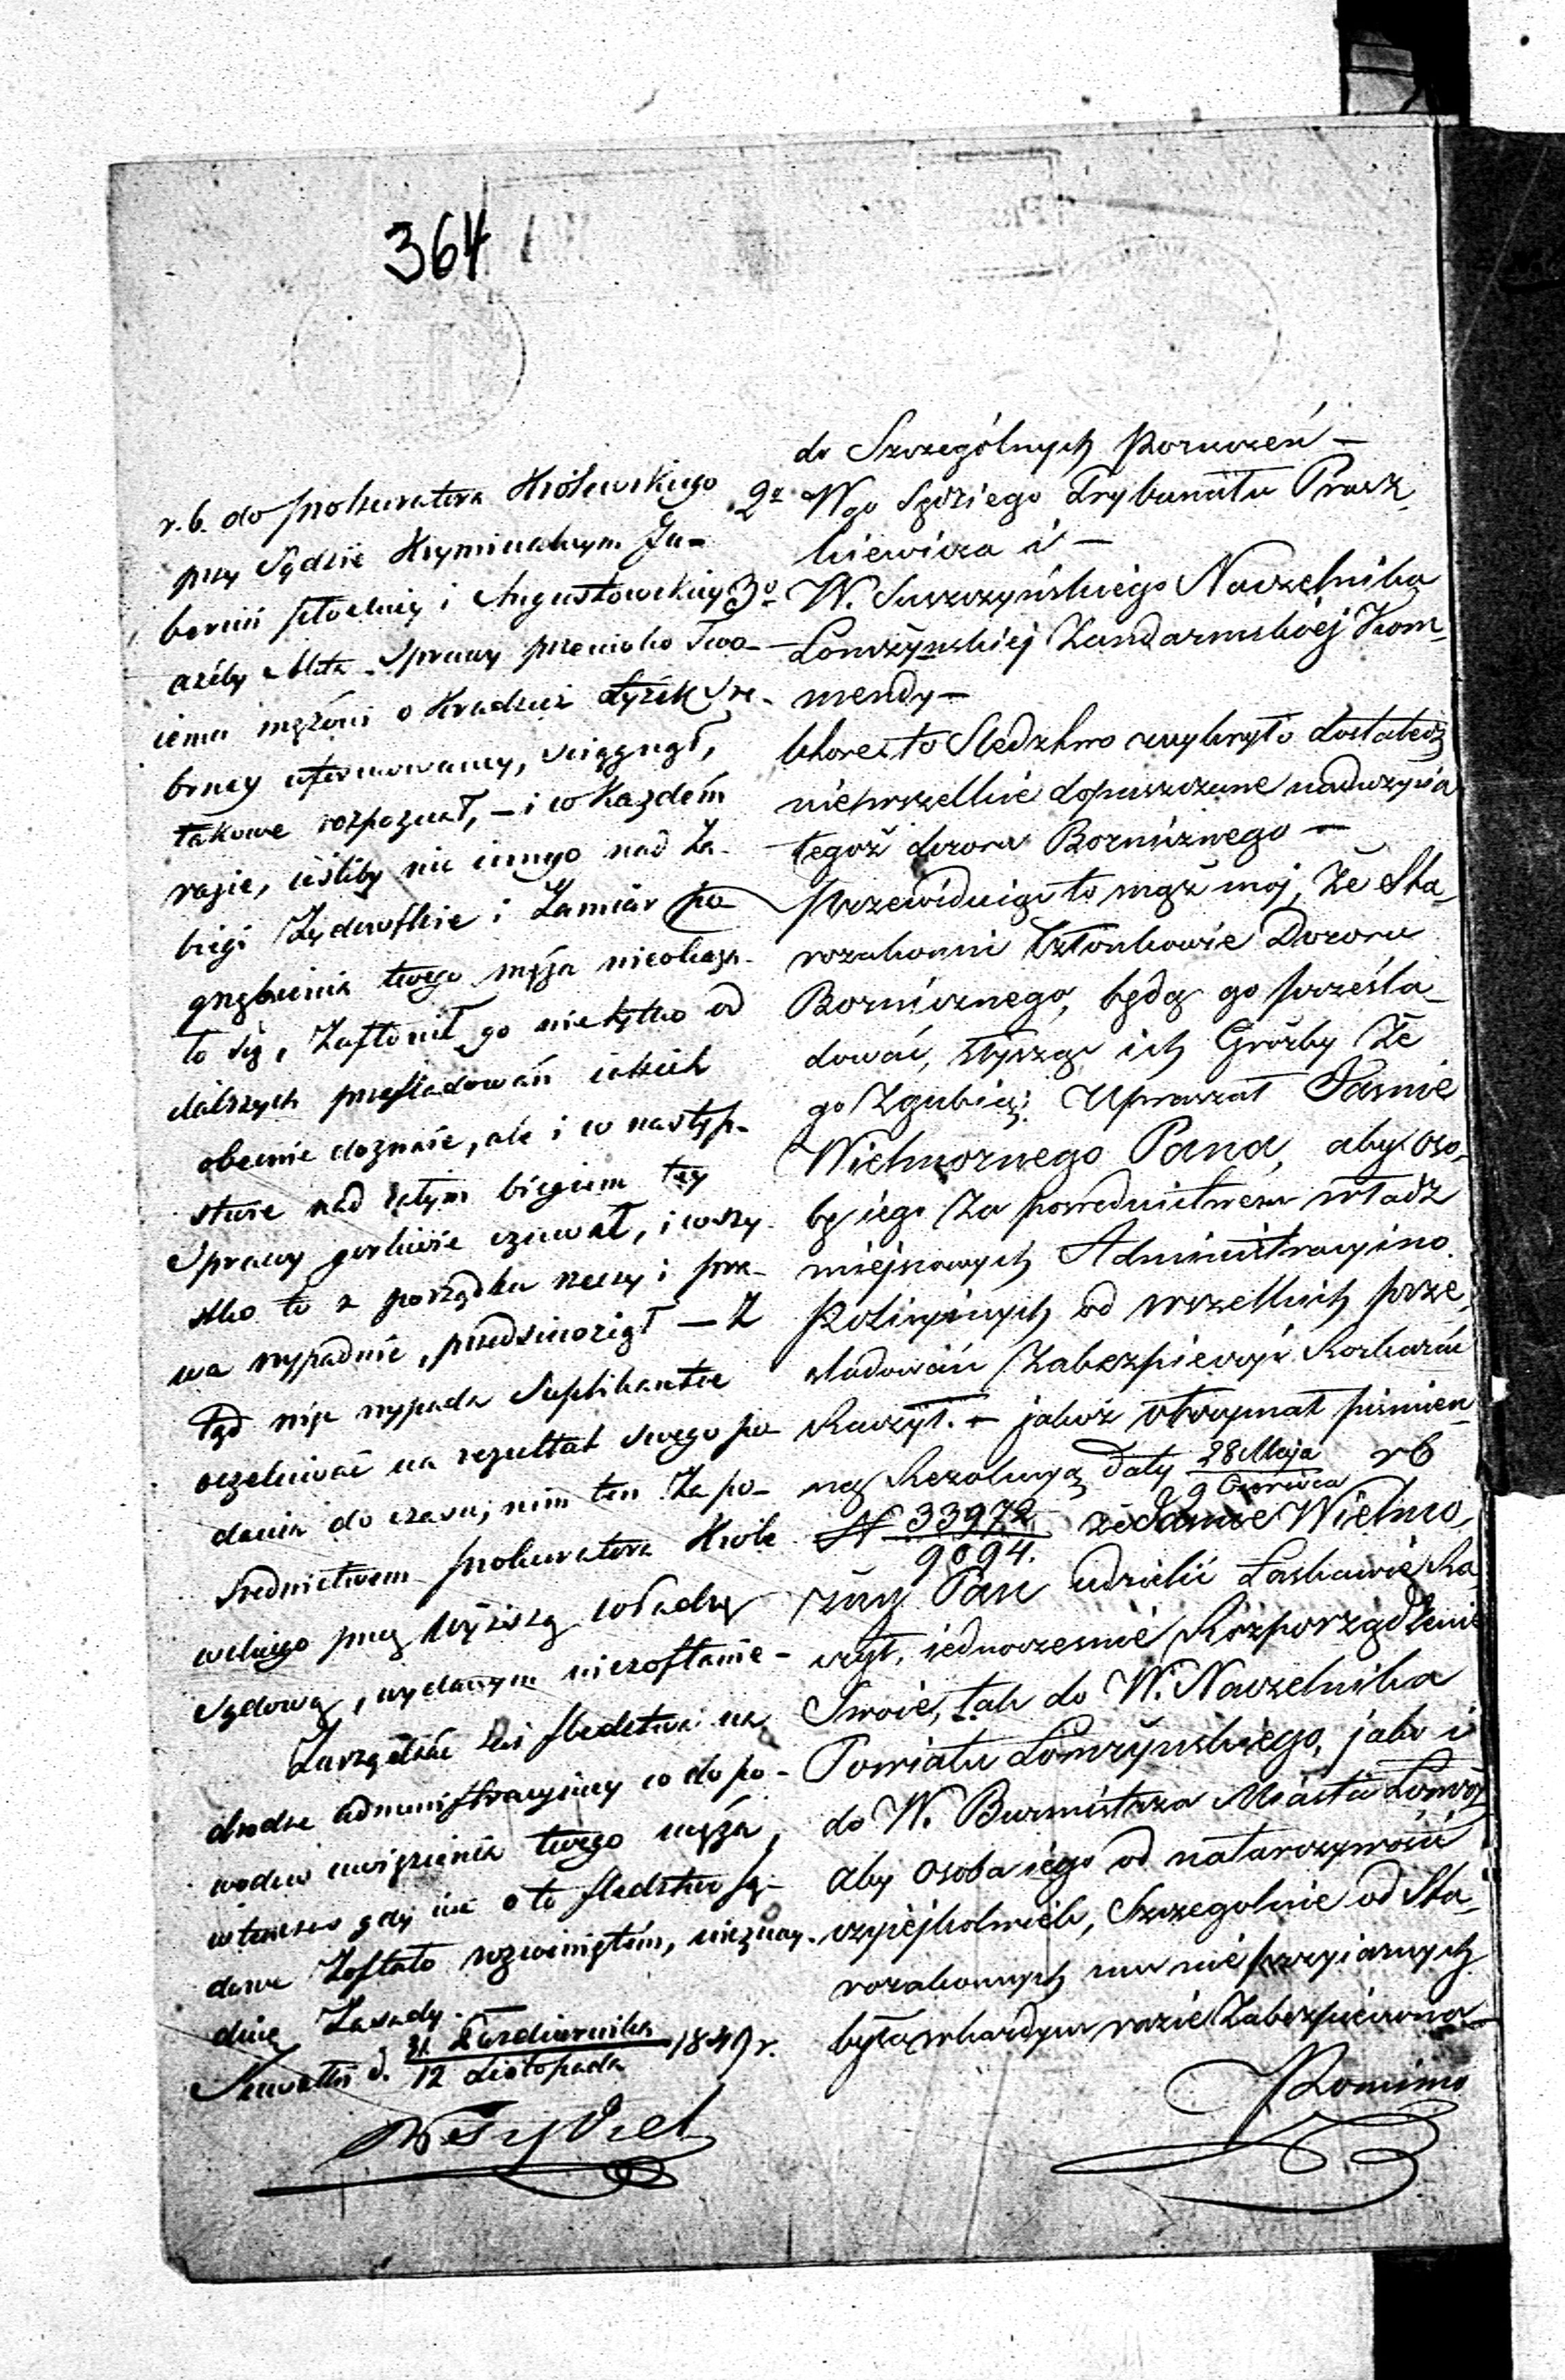 364
r.b. do prokuratora Królewskiego
przy Sądzie Kryminalnym Gu-
bernii Płockiéj i Augustowskiéj
ażeby Akta Sprawy przeciwko Two-
iemu mężowi o Kradzież Łyżek Sre-
brnej uformowanej, ściągnął,
takowe rozpoznał, – i w każdém
razie, ieśliby nic innego nad Za-
biegi Żydowskie i Zamiar po-
gnębienia twego męża nieokaza-
ło się, Zasłonił go nietylko od
dalszych prześladowań iakich
obecnie doznaie, ale i w następ-
stwie nad całym biegiem tey
Sprawy gorliwie czuwał, i wszy-
stko to z porządku rzeczy i pra-
wa wypadnie, przedsięwziął – Z
tąd więc wypada Suplikantce
oczekiwać na rezultat swego po-
dania do czasu, nim ten Za po-
średnictwem prokuratora Króle-
wskiego przez wyższą władzę
Sądową, wydanym niezostanie –
Zarządzać zaś śledztwa na
drodze administracyiney co do po-
wodów uwięzienia twego męża,
wtenczas gdy iuż o to śledztwo Są-
dowe Zostało rozwiniętém, nieznay-
duię Zasady.
Suwałki d. 31 Października / 12 Listopada 1849 r.
do Szczególnych Poruczeń –
2º Wgo Sędziego Trybunału Prasz-
kiewicza i –
3º W. Suszczyńskiego Naczelnika
Łomżyńskiéj Żandarmskiéj Kom-
mendy –
które to Śledztwo wykryło dostatecz-
nie wszelkie dopuszczone nadużycia
tegoż dozoru Bożnicznego –
Przewidując to mąż mój, Że Sta-
rozakonni Członkowie Dozoru
Bożnicznego, będą go prześla-
dować, słysząc ich Groźby Że
go Zgubią; Upraszał Jaśnie
Wielmożnego Pana, aby oso-
bę iego Za pośrednictwem władz
miejscowych Administracyino
Policyinych od wszelkich prze-
śladowań Zabezpieczyć Rozkazać
Raczył. – jakoż otrzymał piśmien-
ną Rezolucyą Daty 28 Maja / 9 Czerwca rb
N 33972 / 9094. że Jaśnie Wielmo-
żny Pan udzielić Łaskawie Ra-
czył, iednocześnie Rozporządzenie
Swoie, tak do W. Naczelnika
Powiatu Łomżyńskiego, jako i
do W. Burmistrza Miasta Łomży
aby osoba iego od natarczywości
czyiejkolwiek, Szczególnie od Sta-
rozakonnych mu nieprzyiaznych
była w każdym razie Zabezpieczona –